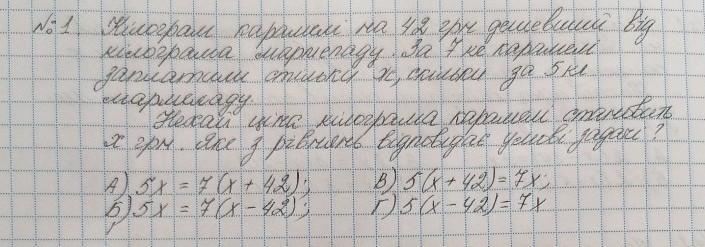 №1. Кілограм карамелі на 42 грн дешевший від
кілограма мармеладу. За 7 кг карамелі
заплатили стільки ж, скільки за 5 кг
мармеладу.
Нехай ціна кілограма карамелі становить
х грн. Яке з рівнянь відповідає умові задачі?
А) 5х = 7(х + 42); В) 5(х + 42) = 7х;
Б) 5х = 7(х - 42); Г) 5(х - 42) = 7х